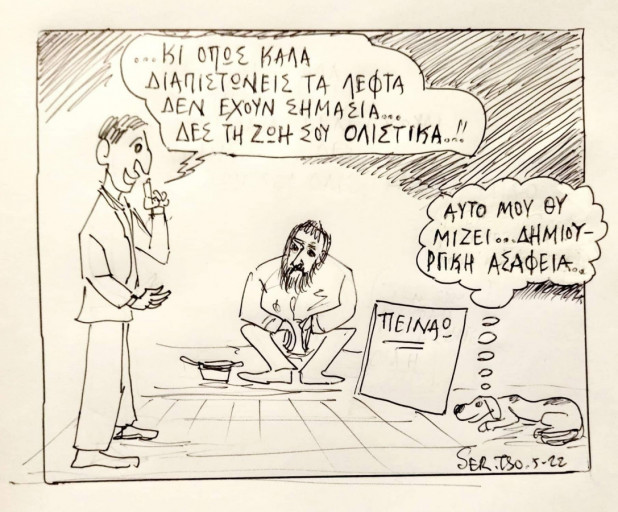 ...ΚΙ ΟΠΩΣ ΚΑΛΑ
ΔΙΑΠΙΣΤΩΝΕΙΣ ΤΑ ΛΕΦΤΑ
ΔΕΝ ΕΧΟΥΝ ΣΗΜΑΣΙΑ...
ΔΕΣ ΤΗ ΖΩΗ ΣΟΥ ΟΛΙΣΤΙΚΑ...!!
ΑΥΤΟ ΜΟΥ ΘΥ
ΜΙΖΕΙ...ΔΗΜΙΟΥ-
ΡΓΙΚΗ ΑΣΑΦΕΙΑ...
ΠΕΙΝΑΩ
SER.TSO.5-22